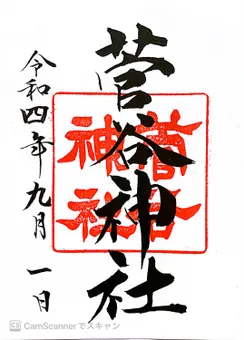 菅谷神社
令和四年九月一日
菅谷
神社
CS CamScannerでスキャン